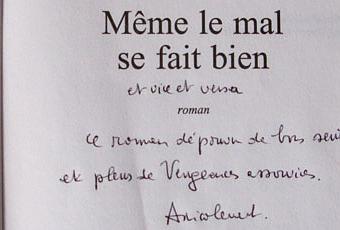 Même le mal
se fait bien
et vice et versa
roman
ce roman dépourvu de bon sens
et plein de Vengeances assouvies.
Amicalement.